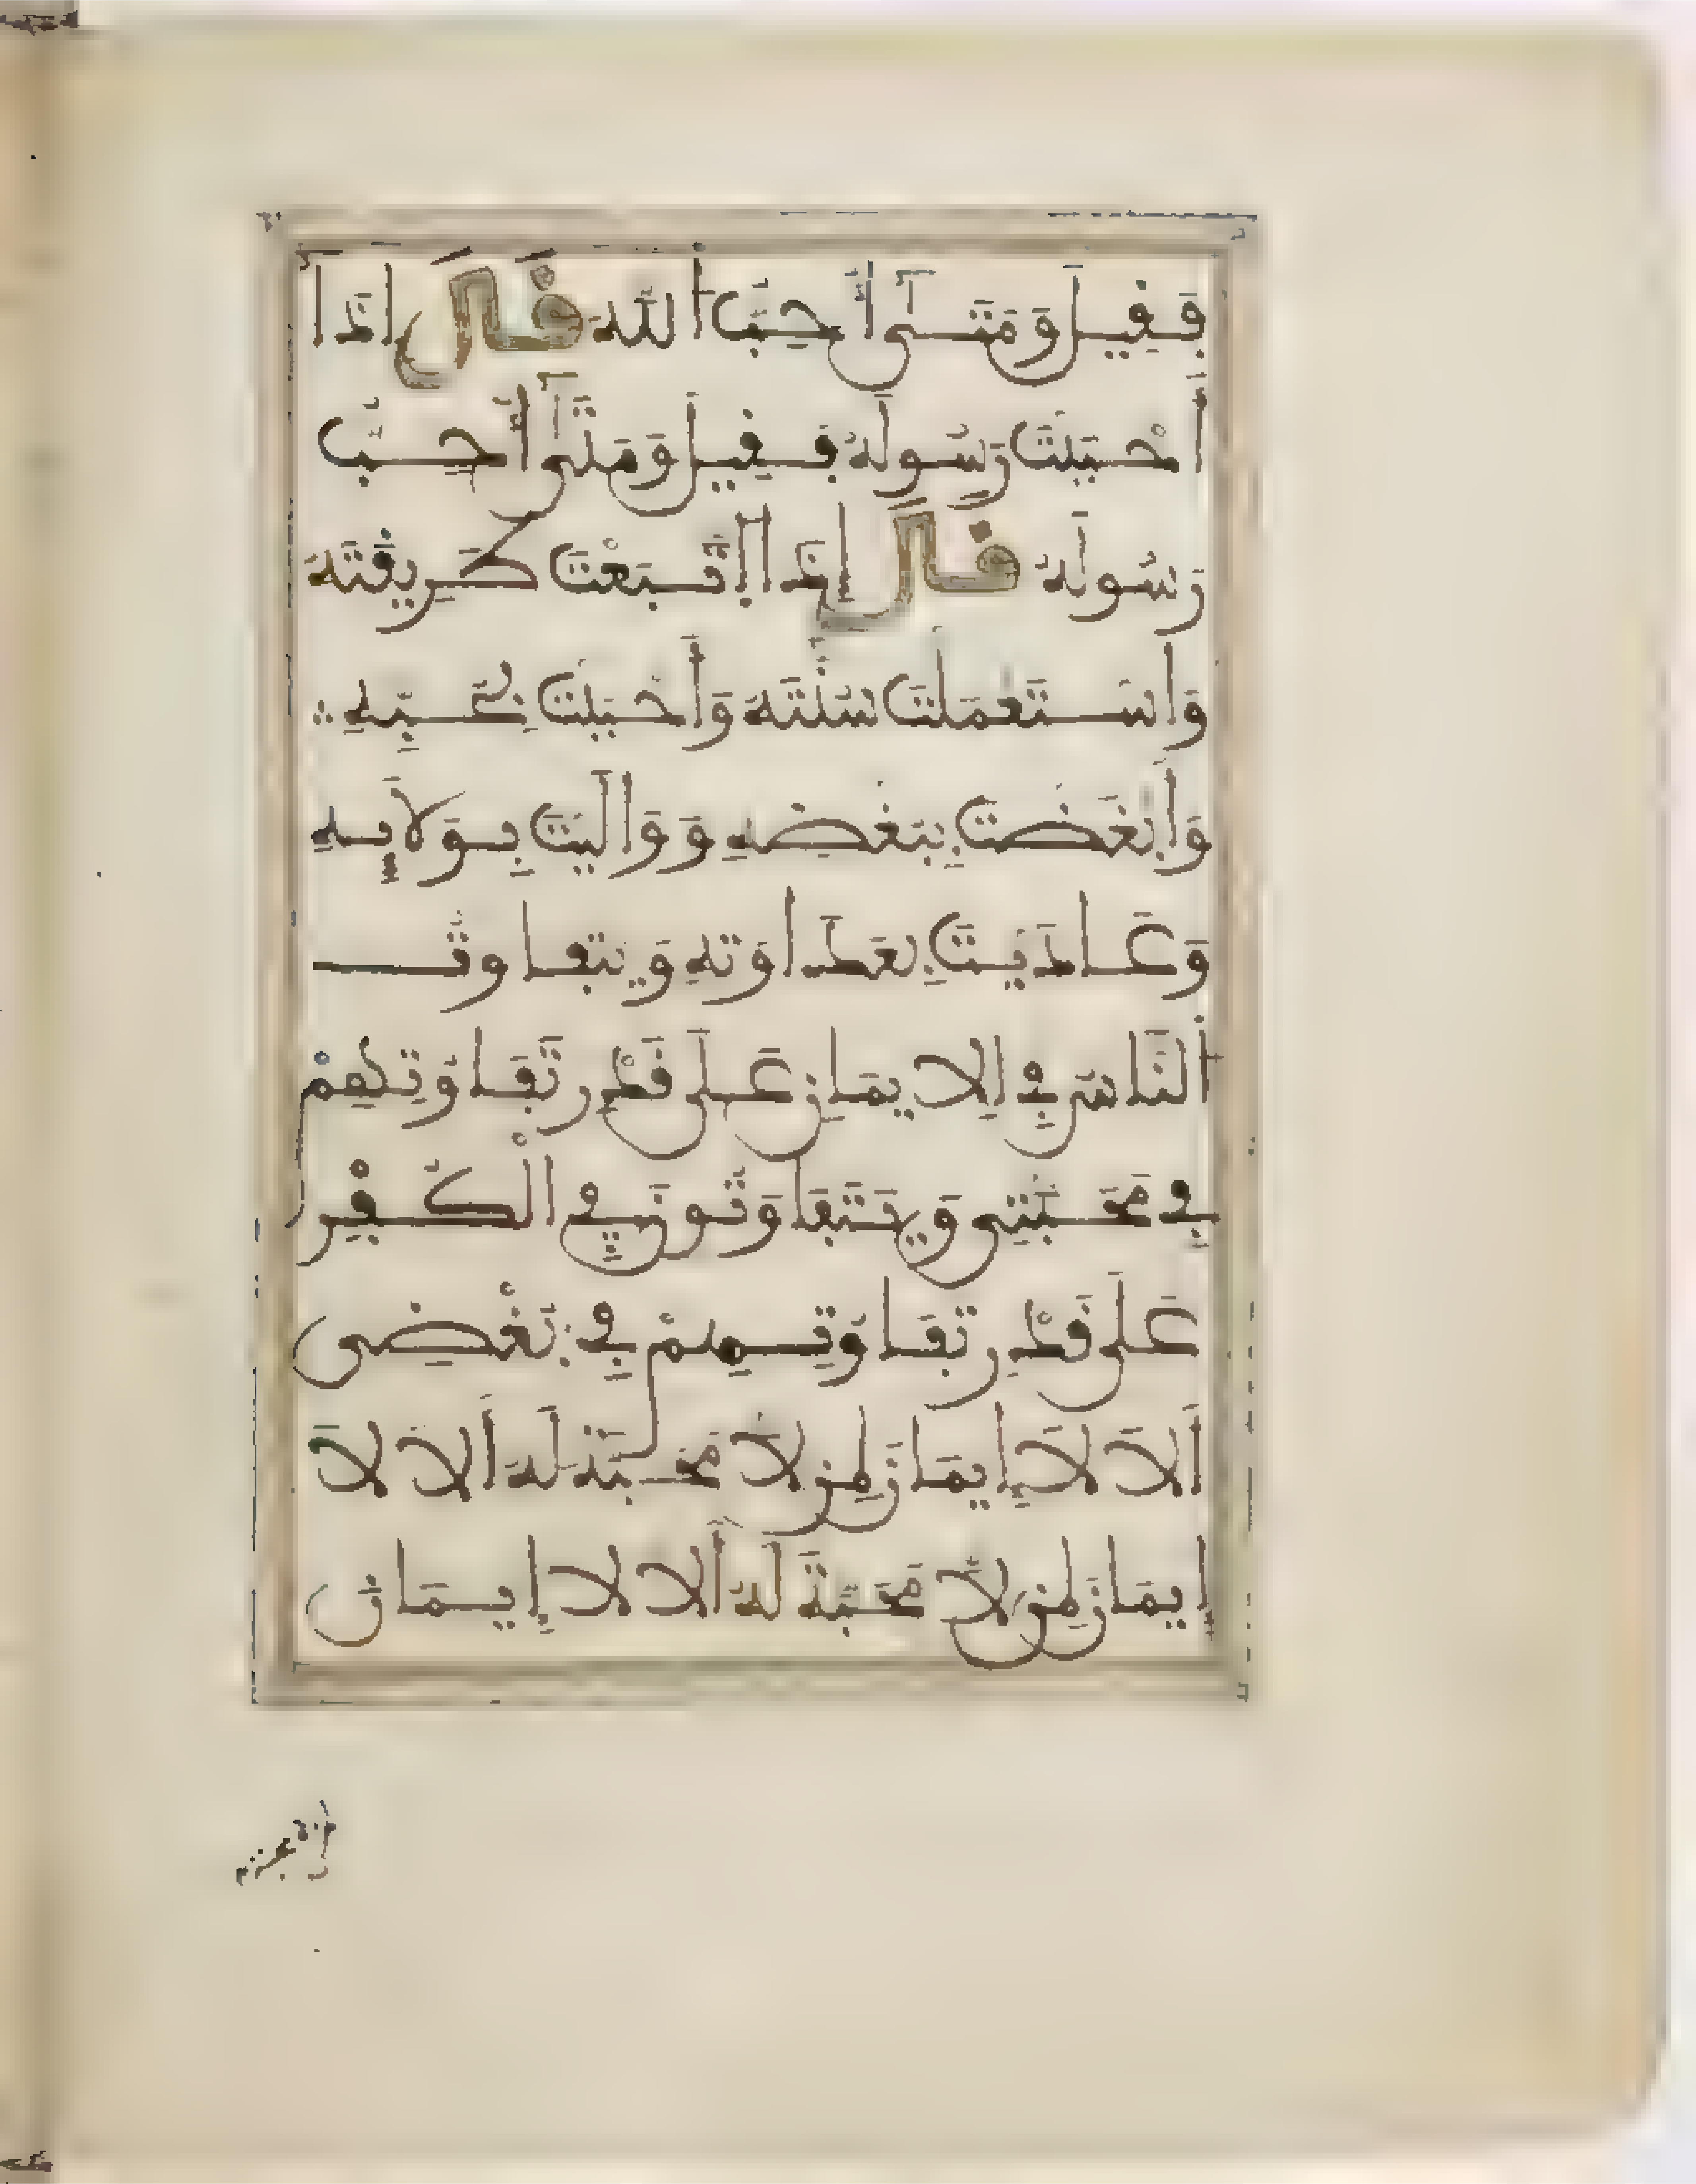 فَقِيلَ وَمَتَىٰ أُحِبُّ اللَّهَ قَالَ إِذَا
أَحْبَبْتَ رَسُولَهُ فَقِيلَ وَمَتَىٰ أُحِبُّ
رَسُولَهُ قَالَ إِذَا اتَّبَعْتَ طَرِيقَتَهُ
وَاسْتَعْمَلْتَ سُنَّتَهُ وَأَحْبَبْتَ بِحُبِّهِ
وَأَبْغَضْتَ بِبُغْضِهِ وَوَالَيْتَ بِوَلَايَتِهِ
وَعَادَيْتَ بِعَدَاوَتِهِ وَيَتَفَاوَتُ
النَّاسُ فِي الْإِيمَانِ عَلَى قَدْرِ تَفَاوُتِهِمْ
فِي مَحَبَّتِي وَيَتَفَاوَتُونَ فِي الْكُفْرِ
عَلَى قَدْرِ تَفَاوُتِهِمْ فِي بُغْضِي
أَلَا لَا إِيمَانَ لِمَنْ لَا مَحَبَّةَ لَهُ أَلَا لَا
إِيمَانَ لِمَنْ لَا مَحَبَّةَ لَهُ أَلَا لَا إِيمَانَ